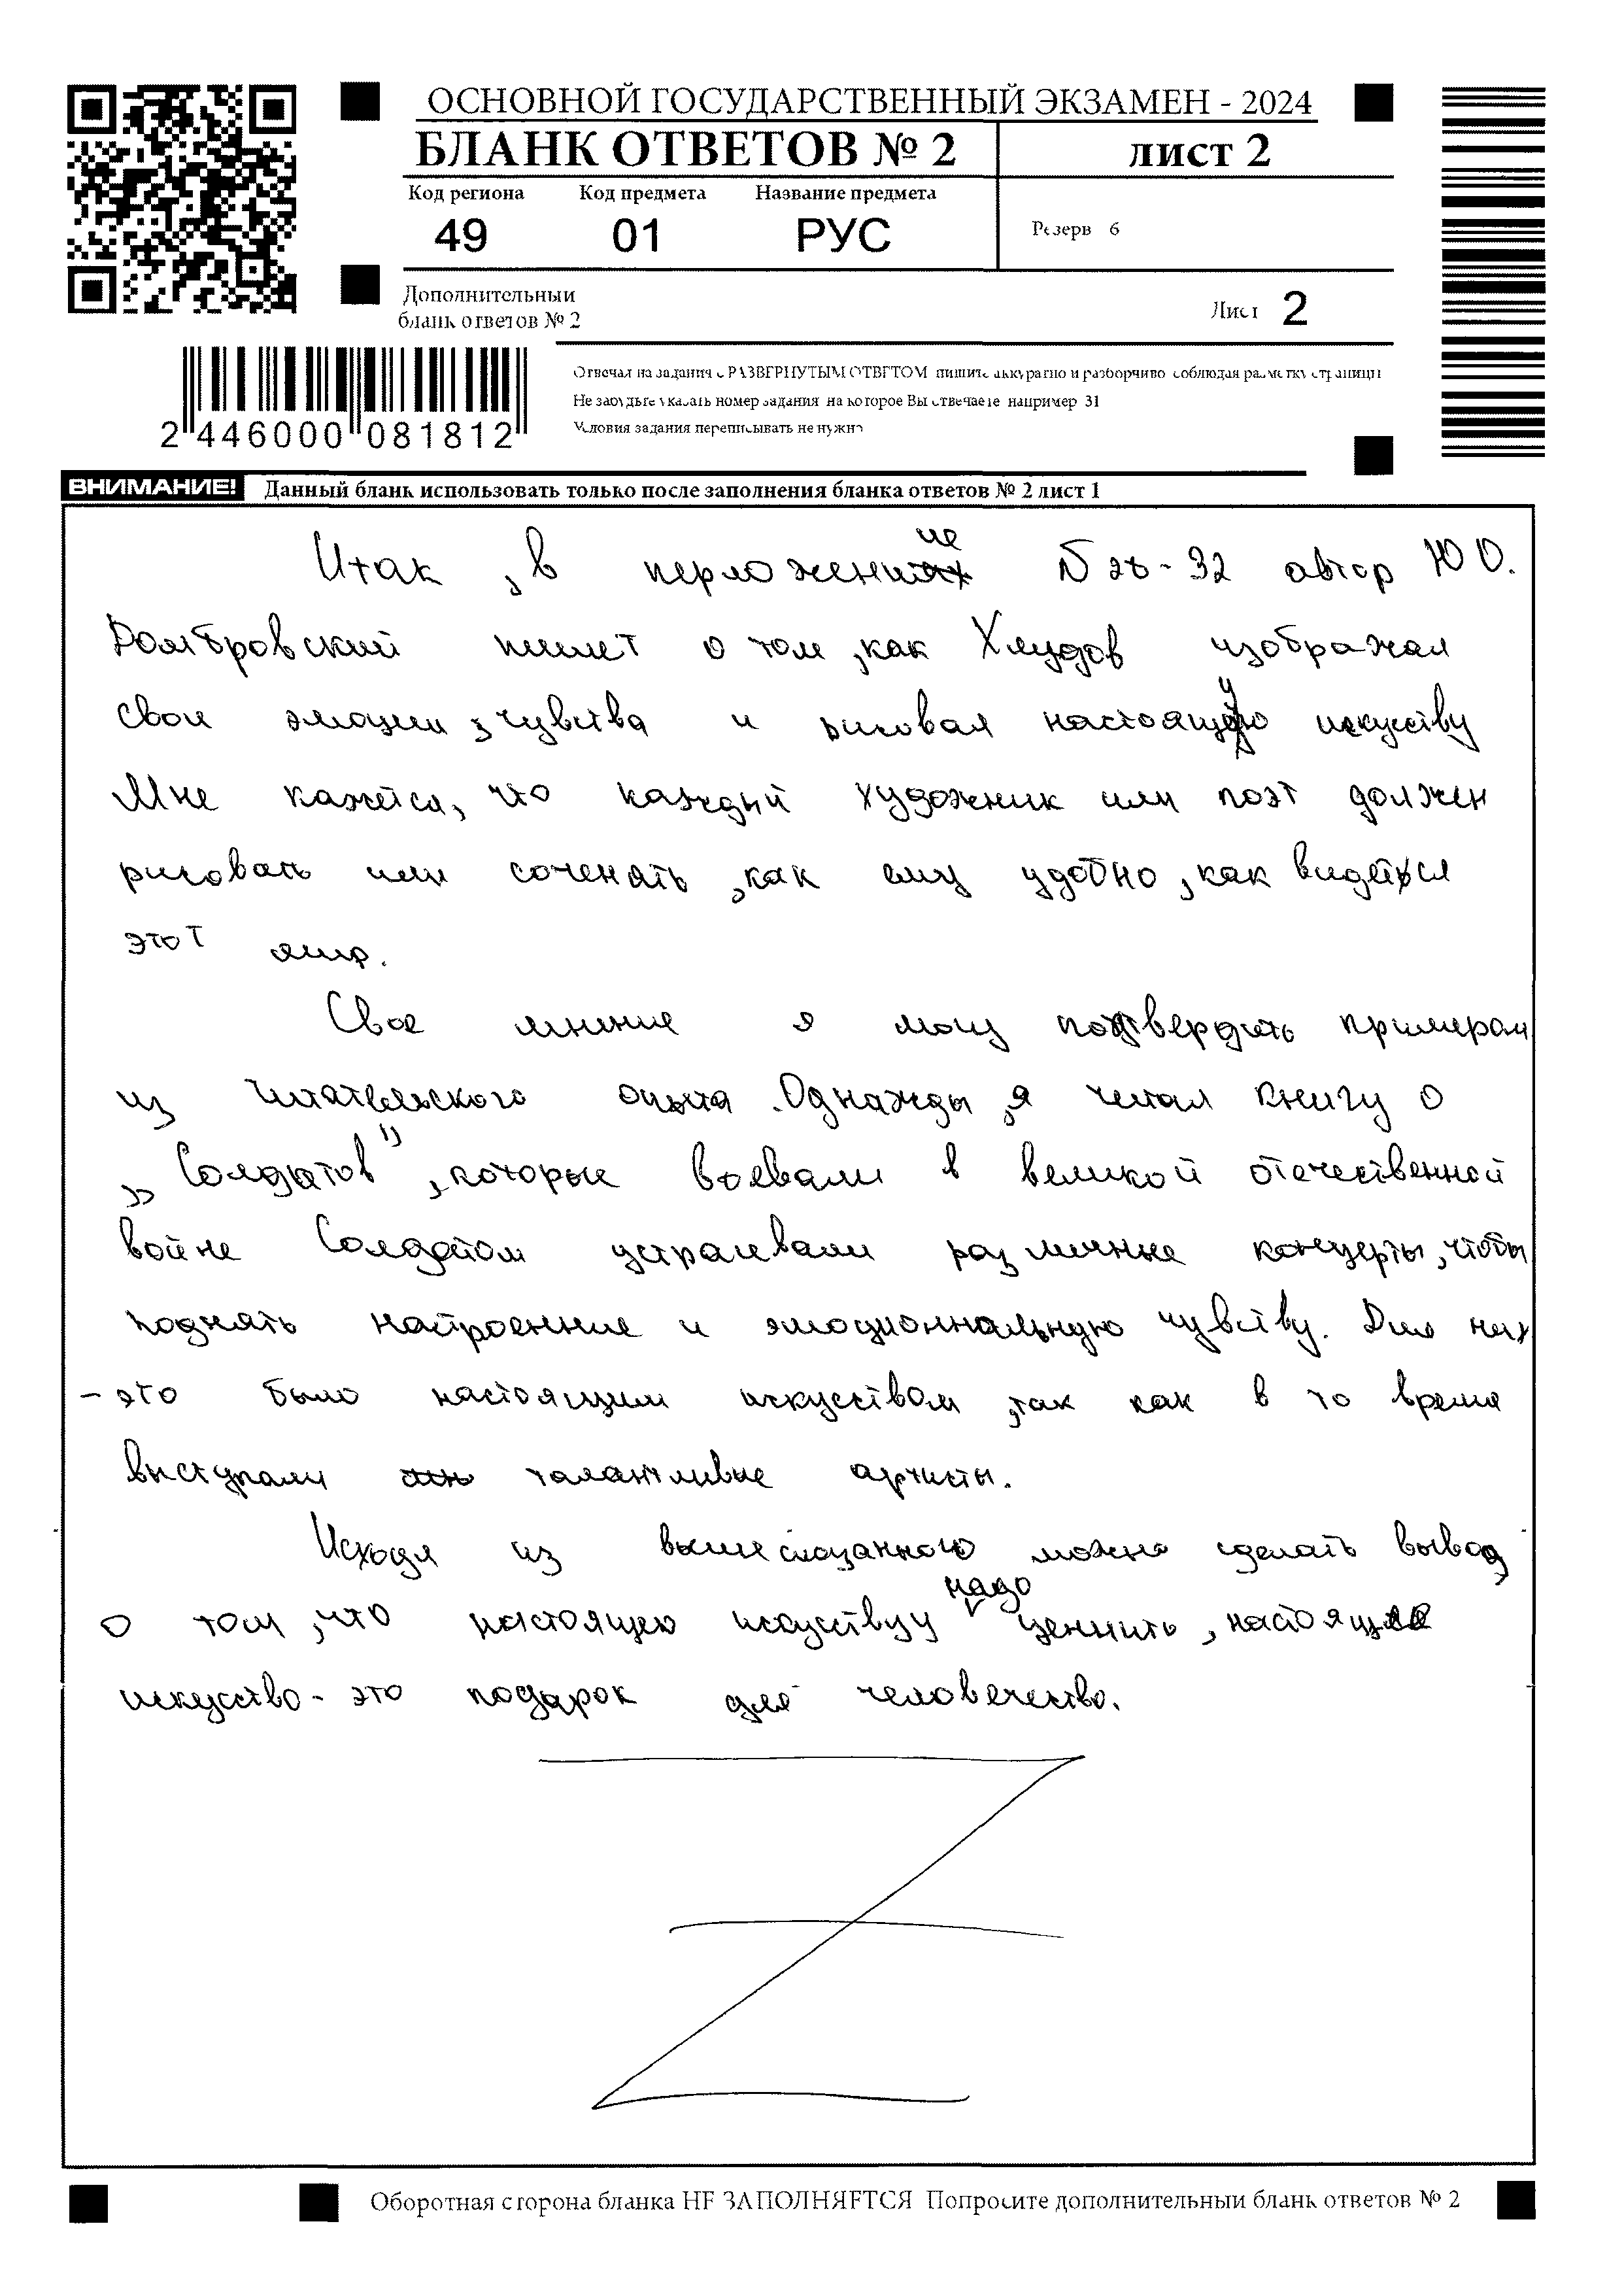 ОСНОВНОЙ ГОСУДАРСТВЕННЫЙ ЭКЗАМЕН - 2024
БЛАНК ОТВЕТОВ № 2
лист 2
Код региона Код предмета Название предмета
49 01 РУС
Резерв 6
Дополнительный
бланк ответов № 2
Лист 2
Отвечая на задания с РАЗВЕРНУТЫМ ОТВЕТОМ пишите аккуратно и разборчиво соблюдая разметку страницы
Не забудьте указать номер задания на которое Вы отвечаете например 31
Условия задания переписывать не нужно
2 446000 081812
ВНИМАНИЕ! Данный бланк использовать только после заполнения бланка ответов № 2 лист 1
Итак , в перложение 26-32 автор Ю О.
Домбровский пишет о том ,как Хлудов изображал
свои эмоции , чувства и рисовал настоящую искуству
Мне кажется, что каждый художник или поэт должен
рисовать или соченять ,как ему удобно , как видется
этот мир.
Свое мнение я могу подтвердить примером
из читательского опыта . Однажды ,я читал книгу о
„Солдатов" , которые воевали в великой отечественной
войне Солдатом устраевали различные концерты , чтобы
поднять настроенние и эмоционнальную чувству. Для них
- это было настоящим искуством ,так как в то время
выступали талантливые артисты.
Исходя из вышесказанного можно сделать вывод
о том , что настоящею искуству надо ценнить , настоящее
искусство - это подарок для человечество.
Оборотная сторона бланка НЕ ЗАПОЛНЯЕТСЯ Попросите дополнительный бланк ответов № 2